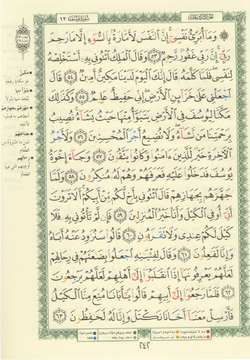 الجزء الثالث عشر سورة يوسف ١٢
وَمَا أُبَرِّئُ نَفْسِي إِنَّ النَّفْسَ لَأَمَّارَةٌ بِالسُّوءِ إِلَّا مَا رَحِمَ
رَبِّي إِنَّ رَبِّي غَفُورٌ رَّحِيمٌ ﴿٥٣﴾ وَقَالَ الْمَلِكُ ائْتُونِي بِهِ أَسْتَخْلِصْهُ
لِنَفْسِي فَلَمَّا كَلَّمَهُ قَالَ إِنَّكَ الْيَوْمَ لَدَيْنَا مَكِينٌ أَمِينٌ ﴿٥٤﴾ قَالَ
اجْعَلْنِي عَلَىٰ خَزَائِنِ الْأَرْضِ إِنِّي حَفِيظٌ عَلِيمٌ ﴿٥٥﴾ وَكَذَٰلِكَ
مَكَّنَّا لِيُوسُفَ فِي الْأَرْضِ يَتَبَوَّأُ مِنْهَا حَيْثُ يَشَاءُ نُصِيبُ
بِرَحْمَتِنَا مَن نَّشَاءُ وَلَا نُضِيعُ أَجْرَ الْمُحْسِنِينَ ﴿٥٦﴾ وَلَأَجْرُ
الْآخِرَةِ خَيْرٌ لِّلَّذِينَ آمَنُوا وَكَانُوا يَتَّقُونَ ﴿٥٧﴾ وَجَاءَ إِخْوَةُ
يُوسُفَ فَدَخَلُوا عَلَيْهِ فَعَرَفَهُمْ وَهُمْ لَهُ مُنكِرُونَ ﴿٥٨﴾ وَلَمَّا
جَهَّزَهُم بِجَهَازِهِمْ قَالَ ائْتُونِي بِأَخٍ لَّكُم مِّنْ أَبِيكُمْ أَلَا تَرَوْنَ
أَنِّي أُوفِي الْكَيْلَ وَأَنَا خَيْرُ الْمُنزِلِينَ ﴿٥٩﴾ فَإِن لَّمْ تَأْتُونِي بِهِ فَلَا
كَيْلَ لَكُمْ عِندِي وَلَا تَقْرَبُونِ ﴿٦٠﴾ قَالُوا سَنُرَاوِدُ عَنْهُ أَبَاهُ
وَإِنَّا لَفَاعِلُونَ ﴿٦١﴾ وَقَالَ لِفِتْيَانِهِ اجْعَلُوا بِضَاعَتَهُمْ فِي رِحَالِهِمْ
لَعَلَّهُمْ يَعْرِفُونَهَا إِذَا انقَلَبُوا إِلَىٰ أَهْلِهِمْ لَعَلَّهُمْ يَرْجِعُونَ
﴿٦٢﴾ فَلَمَّا رَجَعُوا إِلَىٰ أَبِيهِمْ قَالُوا يَا أَبَانَا مُنِعَ مِنَّا الْكَيْلُ
فَأَرْسِلْ مَعَنَا أَخَانَا نَكْتَلْ وَإِنَّا لَهُ لَحَافِظُونَ ﴿٦٣﴾
٢٤٢